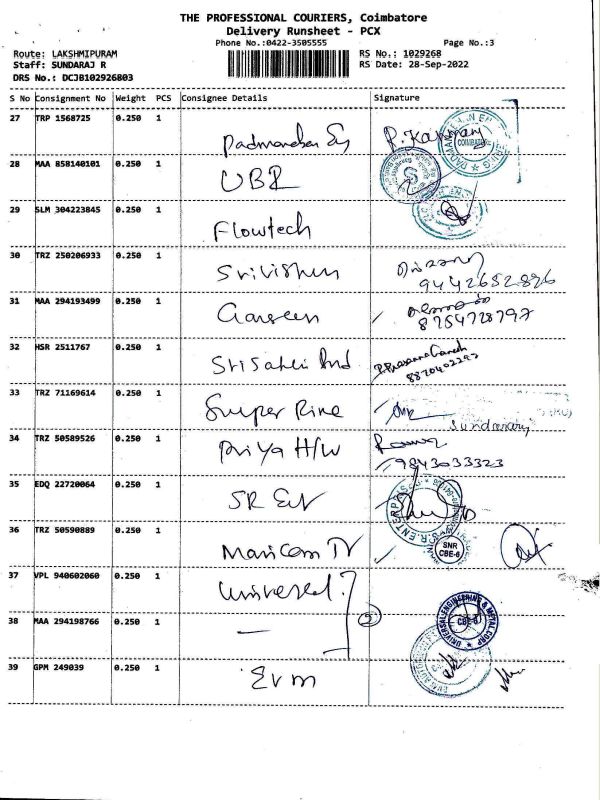 THE PROFESSIONAL COURIERS, Coimbatore
Delivery Runsheet - PCX
Phone No.:0422-3505555
Page No.:3
Route: LAKSHMIPURAM
Staff: SUNDARAJ R
DRS No.: DCJB102926803
RS No.: 1029268
RS Date: 28-Sep-2022
S No Consignment No Weight PCS Consignee Details Signature
27 TRP 1568725 0.250 1
COIMBATORE
28 MAA 858140101 0.250 1 UBR
29 SLM 304223845 0.250 1 Flowtech
30 TRZ 250206933 0.250 1 Srivishnu
9442652896
31 MAA 294193499 0.250 1
8754728797
32 HSR 2511767 0.250 1 Sri Sakthi Ind
P. Prasanna Ganesh
8870402292
33 TRZ 71169614 0.250 1 Super Fine
Sundararaj
34 TRZ 50589526 0.250 1 Priya H/W
9843033323
35 EDQ 22720064 0.250 1 SR Ent
36 TRZ 50590889 0.250 1
SNR
CBE-6
37 VPL 940602060 0.250 1 Universal
UNIVERSAL ENGINEERING & METAL CORP
CBE-6
38 MAA 294198766 0.250 1 —
39 GPM 249039 0.250 1 Evm